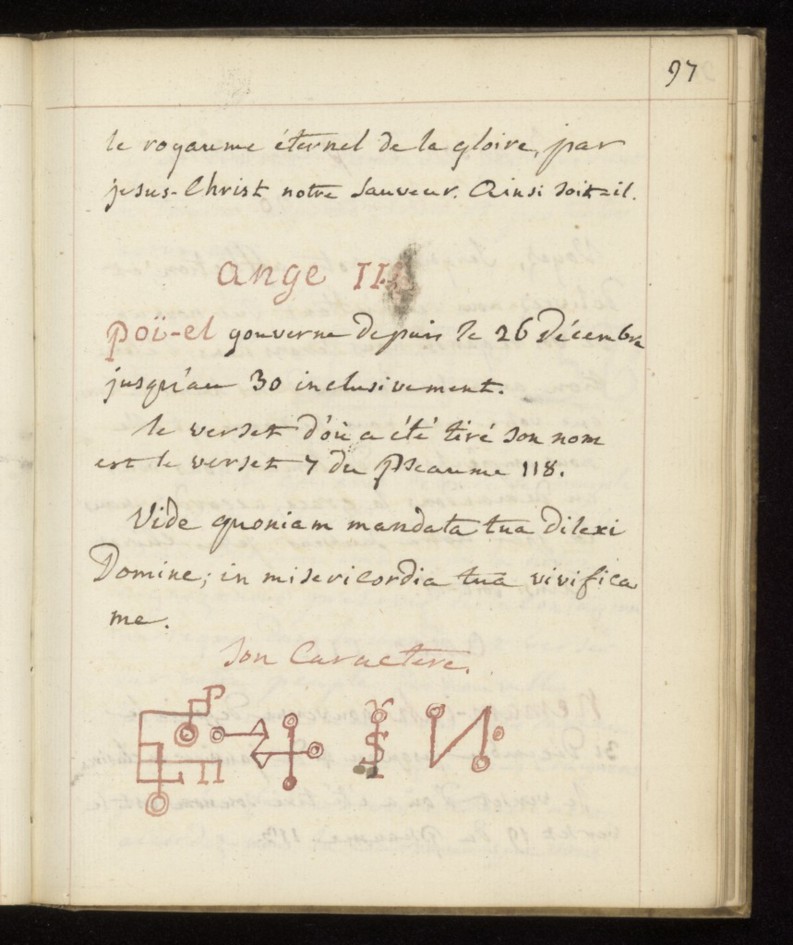 97
le royaume éternel de la gloire, par
jesus-Christ notre Sauveur. Ainsi soit-il.
ange II
poü-el gouverne depuis le 26 Décembre
jusqu'au 30 inclusivement.
le verset d'où a été tiré son nom
est le verset 7 du Pseaume 118.
Vide quoniam mandata tua dilexi
Domine; in misericordia tua vivifica
me.
Son Caractere.